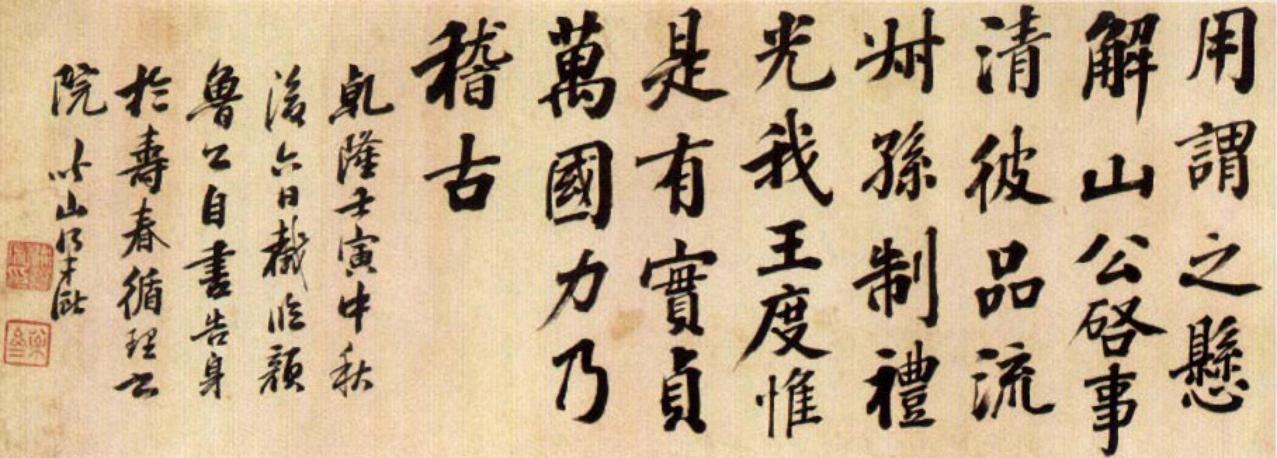 用謂之懸
解山公啓事
清彼品流
叔孫制禮
光我王度惟
是有實貞
萬國力乃
稽古
乾隆壬寅中秋
後六日戲臨顏
魯公自書告身
於壽春循理書
院 聞山